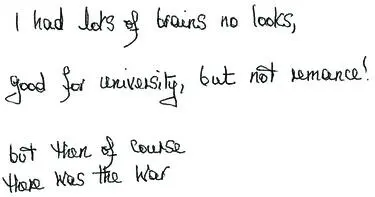 I had lots of brains no looks,
good for university, but not romance!
but then of course
there was the war